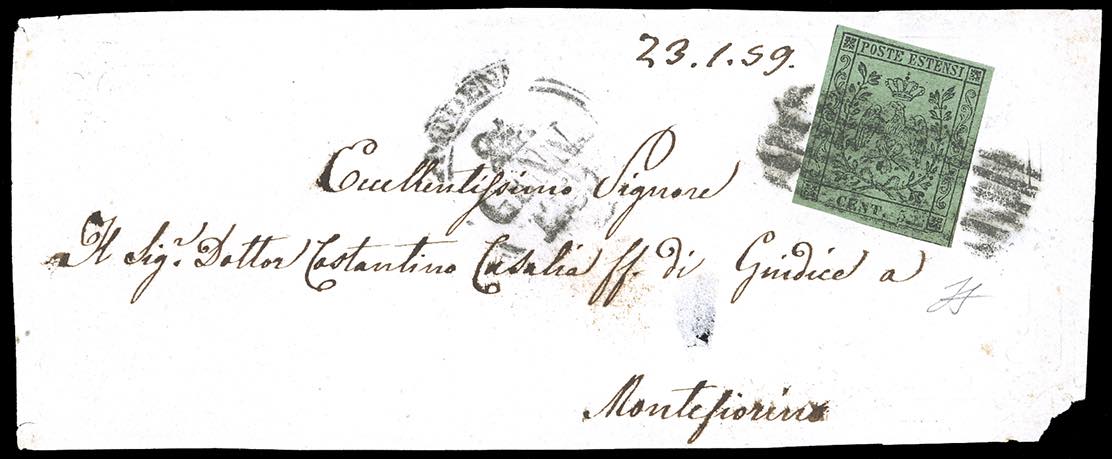 23.1.59.
POSTE ESTENSI
CENT. 5.
MODENA
Eccellentissimo Signore
Il Sig.r Dottor Costantino Casalia ff. di Giudice a
Montefiorino